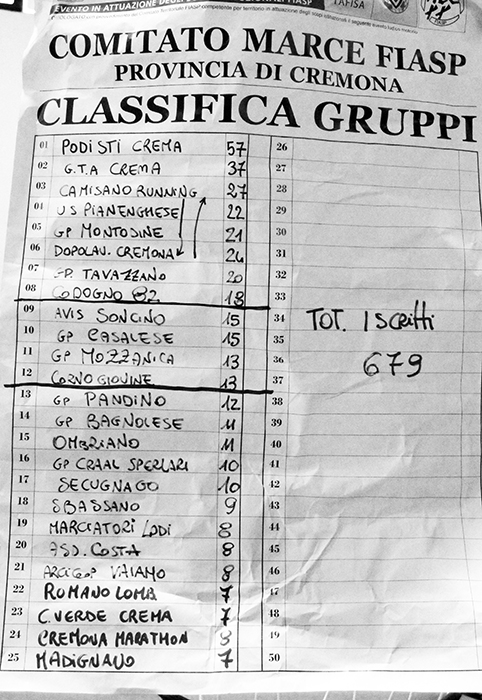 EVENTO IN ATTUAZIONE DEGLI FIASP
TAFISA
COMITATO MARCE FIASP
PROVINCIA DI CREMONA
CLASSIFICA GRUPPI
01 PODISTI CREMA 57 26
02 G.T.A CREMA 37 27
03 CAMISANO RUNNING 27 28
04 US PIANENGHESE 22 29
05 GP MONTODINE 21 30
06 DOPOLAV. CREMONA 24 31
07 G.P. TAVAZZANO 20 32
08 CODOGNO 82 18 33
09 AVIS SONCINO 15 34 TOT. Iscritti
10 GP CASALESE 15 35
11 GP MOZZANICA 13 36 679
12 CORNO GIOVINE 13 37
13 GP PANDINO 12 38
14 GP BAGNOLESE 11 39
15 OMBRIANO 11 40
16 GP CRAAL SPERLARI 10 41
17 SECUGNAGO 10 42
18 SBASSANO 9 43
19 MARCIATORI LODI 8 44
20 ASD. COSTA 8 45
21 ARCI G.P VAIANO 8 46
22 ROMANO LOMB. 7 47
23 C. VERDE CREMA 7 48
24 CREMONA MARATHON 8 49
25 MADIGNANO 7 50